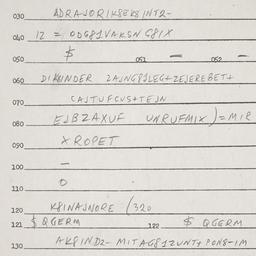 030 ADRAJORIK8EK8INT2-
040 12 = ODG81VAKSN G8IX
050 $ 051 - 052 -
060 DIKUINDER 2AJNG81LEG+2EJEREBET+
070 CAJTUFCUS+TEJN
080 EJB2AXUF UNRUFMIX)=MIR
090 XROPET
100 -
110 0
120 K8INAJNORE (320
121 $ QGERM 122 $ QGERM
130 AK8IND2- MITAG81ZUNT+ PONS-IM